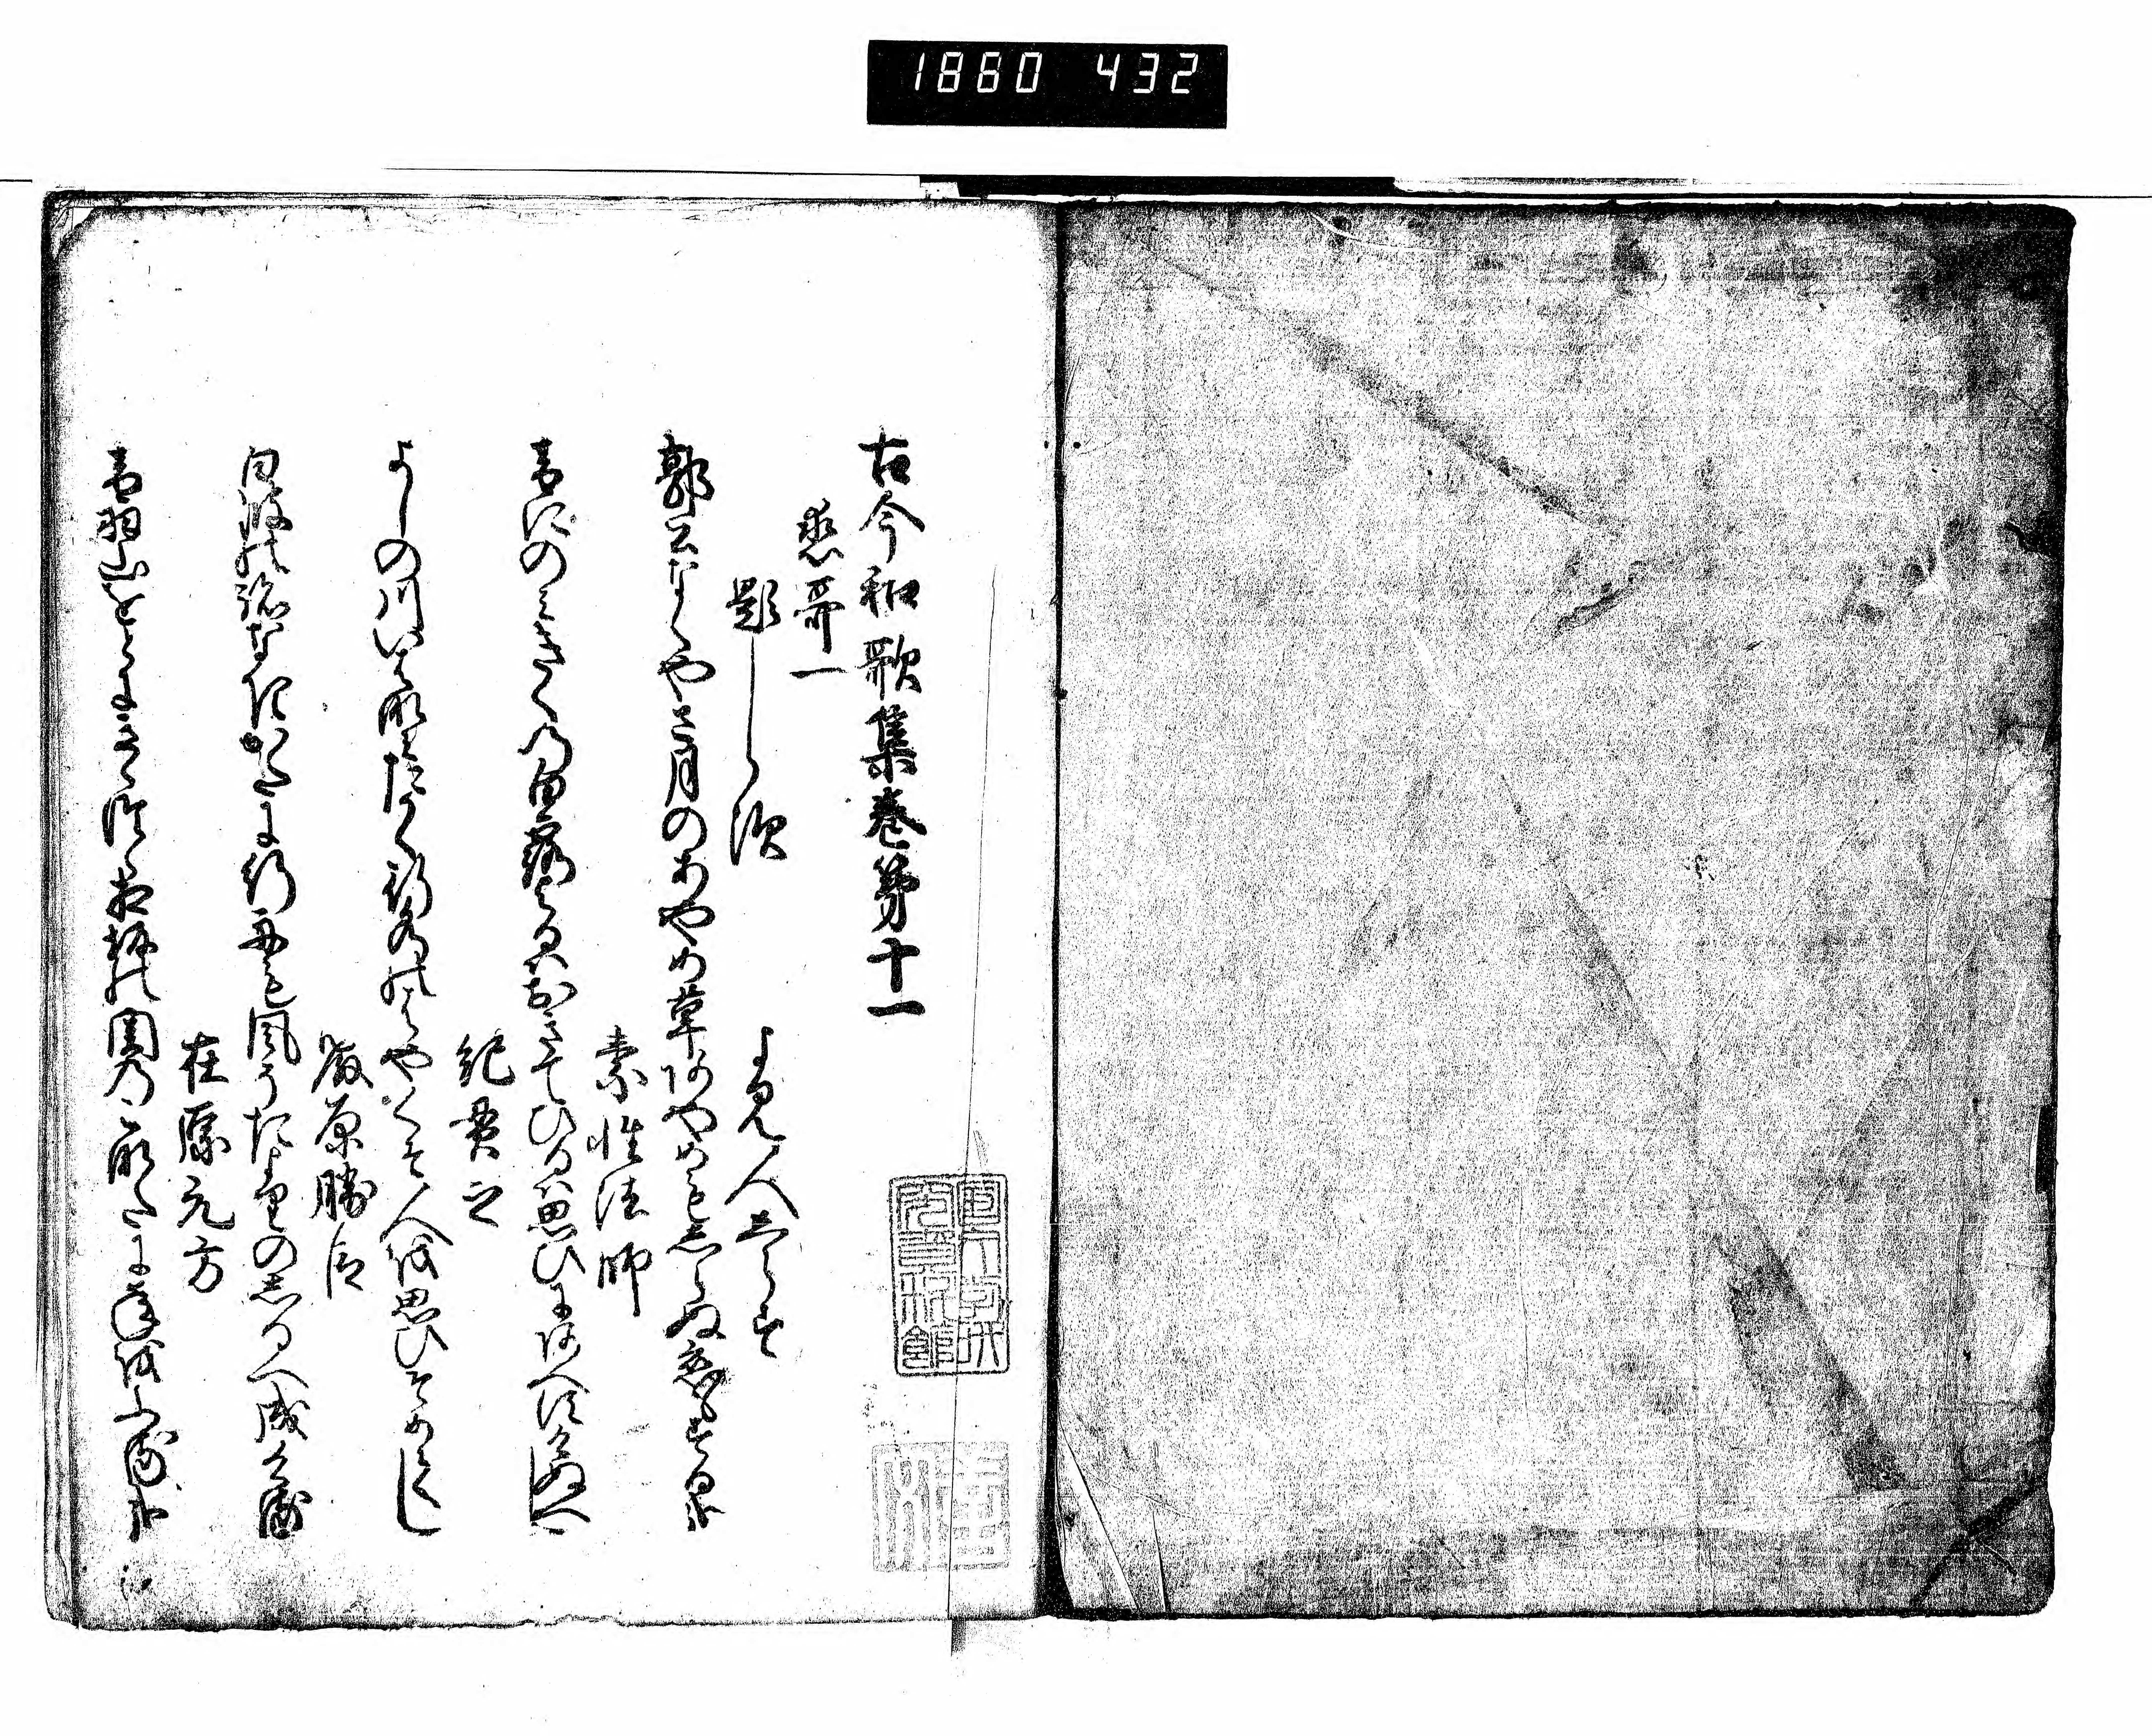 1860 432
古今和歌集巻第十一
恋哥一
題しらす
よみ人しらす
郭公なくやさ月のあやめ草あやめもしらぬ恋もする哉
素性法師
音にのみきくの白露よるはおきてひるは思ひにあへすけぬへし
紀貫之
よしの川いは浪たかく行水のはやくそ人を思ひそめてし
藤原勝臣
白浪の跡なきかたに行舟も風そたよりのしるへ成ける
在原元方
音羽山をとにきゝつゝ相坂の関のこなたに年をふる哉